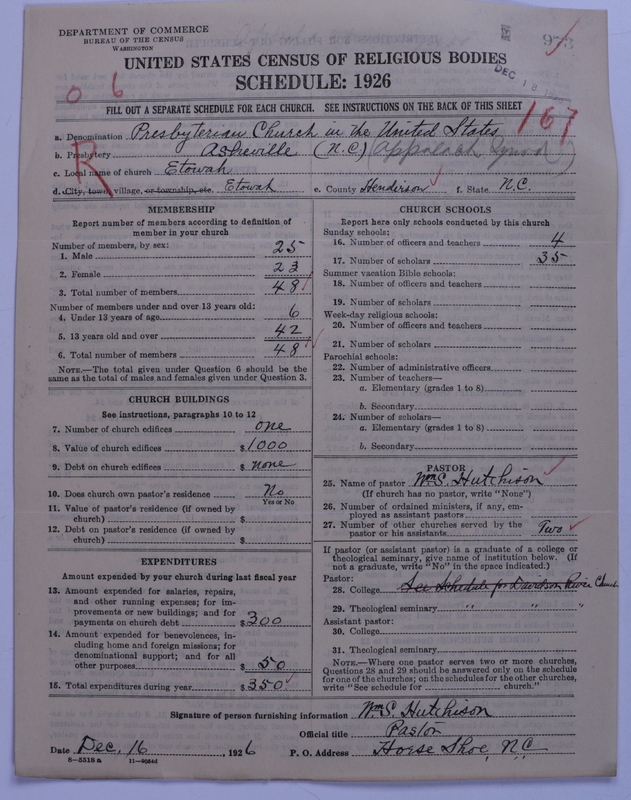 DEPARTMENT OF COMMERCE
BUREAU OF THE CENSUS
WASHINGTON
UNITED STATES CENSUS OF RELIGIOUS BODIES
SCHEDULE: 1926
DEC
0 6
167
R
FILL OUT A SEPARATE SCHEDULE FOR EACH CHURCH. SEE INSTRUCTIONS ON THE BACK OF THIS SHEET
a. Denomination Presbyterian Church in the United States
b. Presbytery Asheville (N.C.) Appalach Synod
c. Local name of church Etowah
d. City, town, village, or township, etc. Etowah e. County Henderson f. State N.C.
MEMBERSHIP
Report number of members according to definition of
member in your church
Number of members, by sex:
1. Male 25
2. Female 23
3. Total number of members 48
Number of members under and over 13 years old:
4. Under 13 years of age 6
5. 13 years old and over 42
6. Total number of members 48
NOTE.—The total given under Question 6 should be
same as the total of males and females given under Question 3.
CHURCH BUILDINGS
See instructions, paragraphs 10 to 12
7. Number of church edifices one
8. Value of church edifices $1000
9. Debt on church edifices $ none
10. Does church own pastor's residence No
Yes or No
11. Value of pastor's residence (if owned by
church) $
12. Debt on pastor's residence (if owned by
church) $
EXPENDITURES
Amount expended by your church during last fiscal year
13. Amount expended for salaries, repairs,
and other running expenses; for im-
provements or new buildings; and for
payments on church debt $300
14. Amount expended for benevolences, in-
cluding home and foreign missions; for
denominational support; and for all
other purposes $50
15. Total expenditures during year $350
CHURCH SCHOOLS
Report here only schools conducted by this church
Sunday schools:
16. Number of officers and teachers 4
17. Number of scholars 35
Summer vacation Bible schools:
18. Number of officers and teachers
19. Number of scholars
Week-day religious schools:
20. Number of officers and teachers
21. Number of scholars
Parochial schools:
22. Number of administrative officers
23. Number of teachers—
a. Elementary (grades 1 to 8)
b. Secondary
24. Number of scholars—
a. Elementary (grades 1 to 8)
b. Secondary
PASTOR
25. Name of pastor Wm S. Hutchison
(If church has no pastor, write "None")
26. Number of ordained ministers, if any, em-
ployed as assistant pastors
27. Number of other churches served by the
pastor or his assistants Two
If pastor (or assistant pastor) is a graduate of a college or
theological seminary, give name of institution below. (If
not a graduate, write "No" in the space indicated.)
Pastor:
28. College See Schedule for Davidson River Church
29. Theological seminary " " "
Assistant pastor:
30. College
31. Theological seminary
NOTE.—Where one pastor serves two or more churches,
Questions 28 and 29 should be answered only on the schedule
for one of the churches; on the schedules for the other churches,
write "See schedule for church."
Signature of person furnishing information Wm S. Hutchison
Official title Pastor
Date Dec. 16, 1926 P. O. Address Horse Shoe, N.C.
8—5518 a